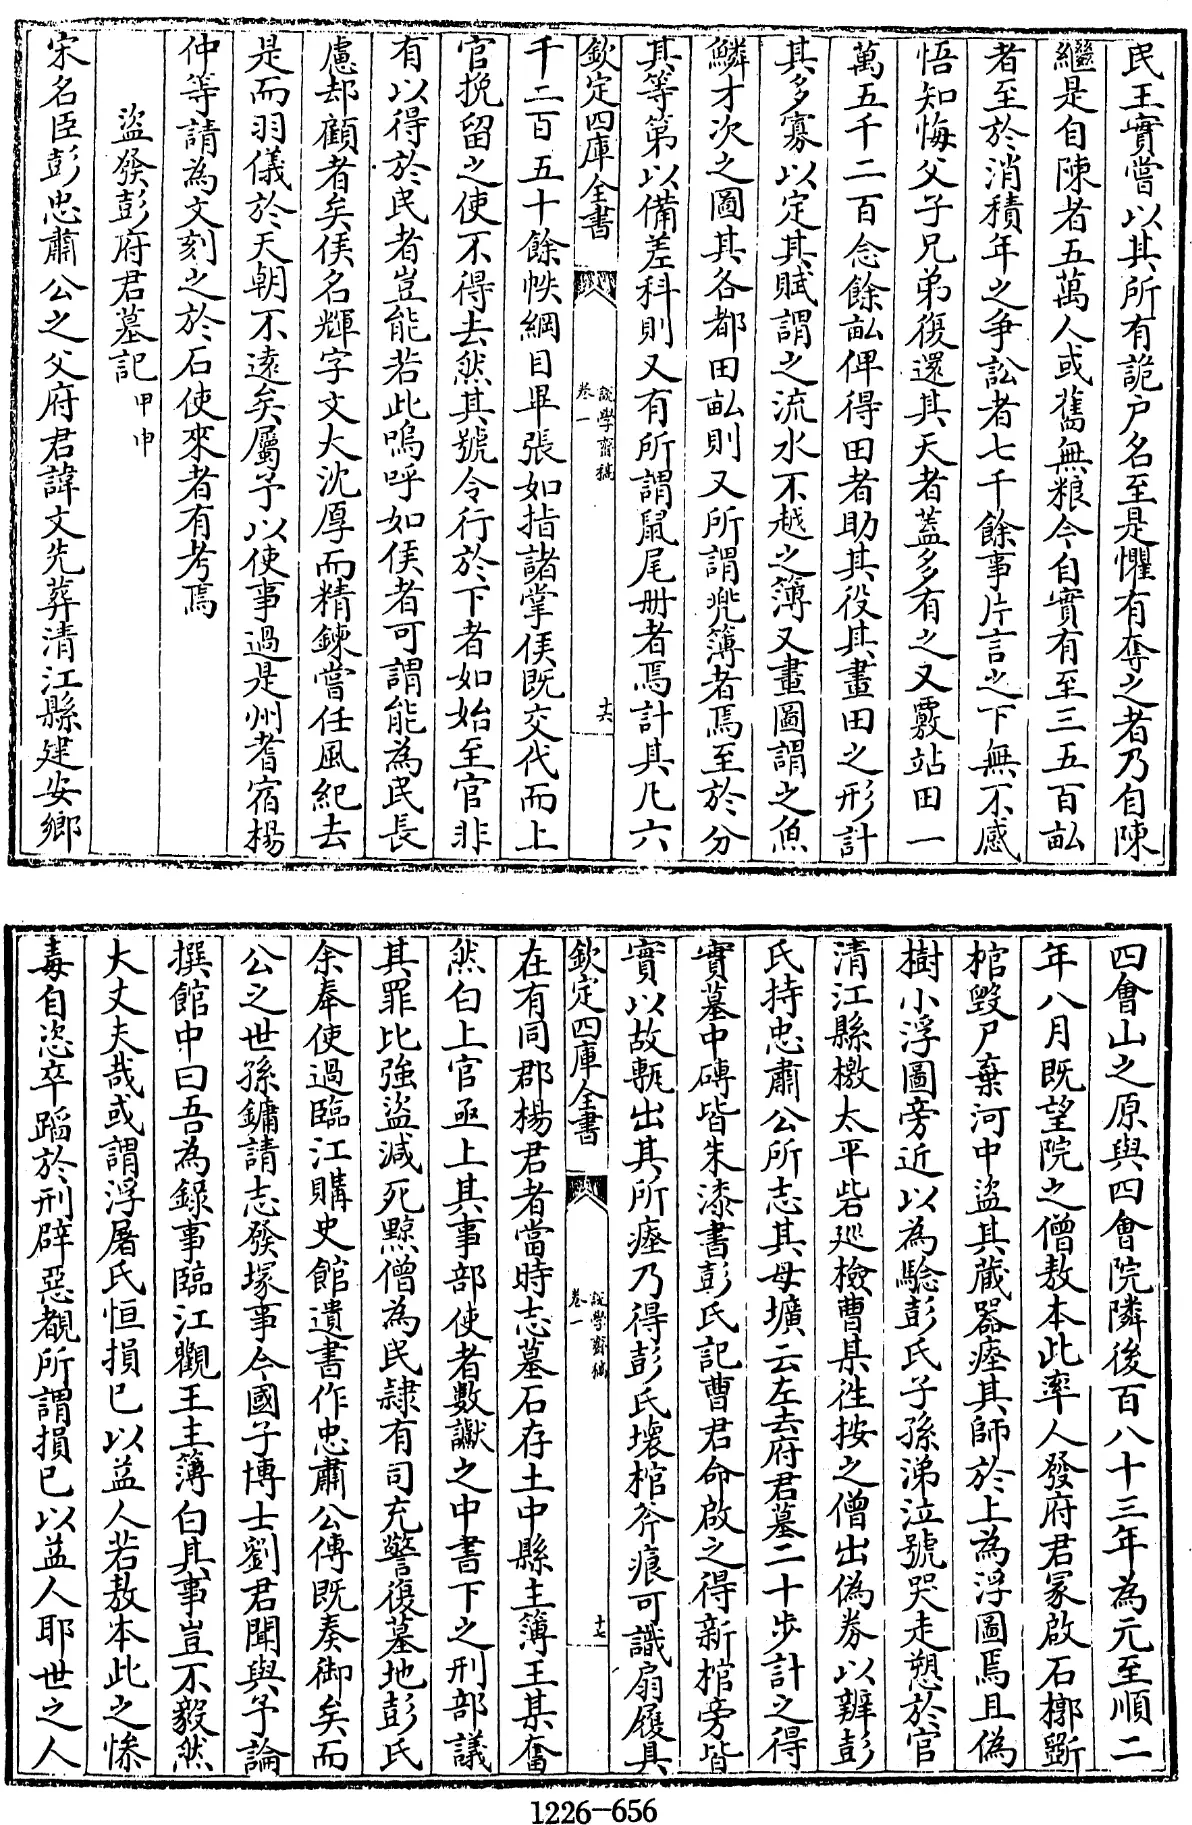 民王實嘗以其所有詭户名至是懼有奪之者乃自陳
繼是自陳者五萬人或舊無粮今自實有至三五百畝
者至於消積年之争訟者七千餘事片言之下無不感
悟知悔父子兄弟復還其天者蓋多有之又覈站田一
萬五千二百念餘畝俾得田者助其役其畫田之形計
其多寡以定其賦謂之流水不越之簿又畫圖謂之魚
鱗才次之圖其各都田畝則又所謂兠簿者焉至於分
其等第以備差科則又有所謂鼠尾册者焉計其凡六
欽定四庫全書
說學齋稿
卷一
十六
千二百五十餘帙綱目畢張如指諸掌侯既交代而上
官挽留之使不得去然其號令行於下者如始至官非
有以得於民者豈能若此嗚呼如侯者可謂能為民長
慮却顧者矣侯名輝字文大沈厚而精鍊嘗任風紀去
是而羽儀於天朝不遠矣屬予以使事過是州耆宿楊
仲等請為文刻之於石使來者有考焉
盜發彭府君墓記甲申
宋名臣彭忠肅公之父府君諱文先葬清江縣建安鄉
四會山之原與四會院隣後百八十三年為元至順二
年八月既望院之僧敖本此率人發府君冡啟石槨斲
棺毀尸棄河中盜其蔵器瘞其師於上為浮圖焉且偽
樹小浮圖旁近以為驗彭氏子孫涕泣號哭走愬於官
清江縣檄太平砦廵檢曹某徃按之僧出偽券以辨彭
氏持忠肅公所志其母壙云左去府君墓二十步計之得
實墓中磚皆朱漆書彭氏記曹君命啟之得新棺旁皆
實以故甎出其所瘞乃得彭氏壞棺斧痕可識扇履具
欽定四庫全書
說學齋稿
卷一
十七
在有同郡楊君者當時志墓石存土中縣主簿王某奮
然白上官亟上其事部使者數讞之中書下之刑部議
其罪比強盜減死黥僧為民隷有司充警復墓地彭氏
余奉使過臨江購史館遺書作忠肅公傳既奏御矣而
公之世孫鏞請志發塚事今國子博士劉君聞與予論
撰館中曰吾為錄事臨江觀王主簿白其事豈不毅然
大丈夫哉或謂浮屠氏恒損已以益人若敖本此之慘
毒自恣卒蹈於刑辟惡覩所謂損已以益人耶世之人
1226-656